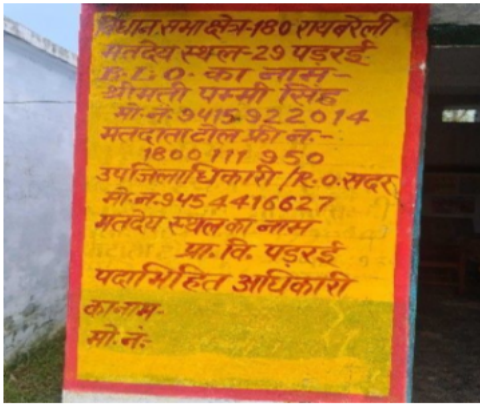 विधान सभा क्षेत्र-180 रायबरेली
मतदेय स्थल-29 पड़रई
B.L.O. का नाम-
श्रीमती पम्मी सिंह
मो.नं.9415922014
मतदाता टोल फ्री नं.-
1800111950
उपजिलाधिकारी/R.O.सदर
मो.न.9454416627
मतदेय स्थल का नाम
प्रा.वि. पड़रई
पदाभिहित अधिकारी
का नाम-
मो.नं:-